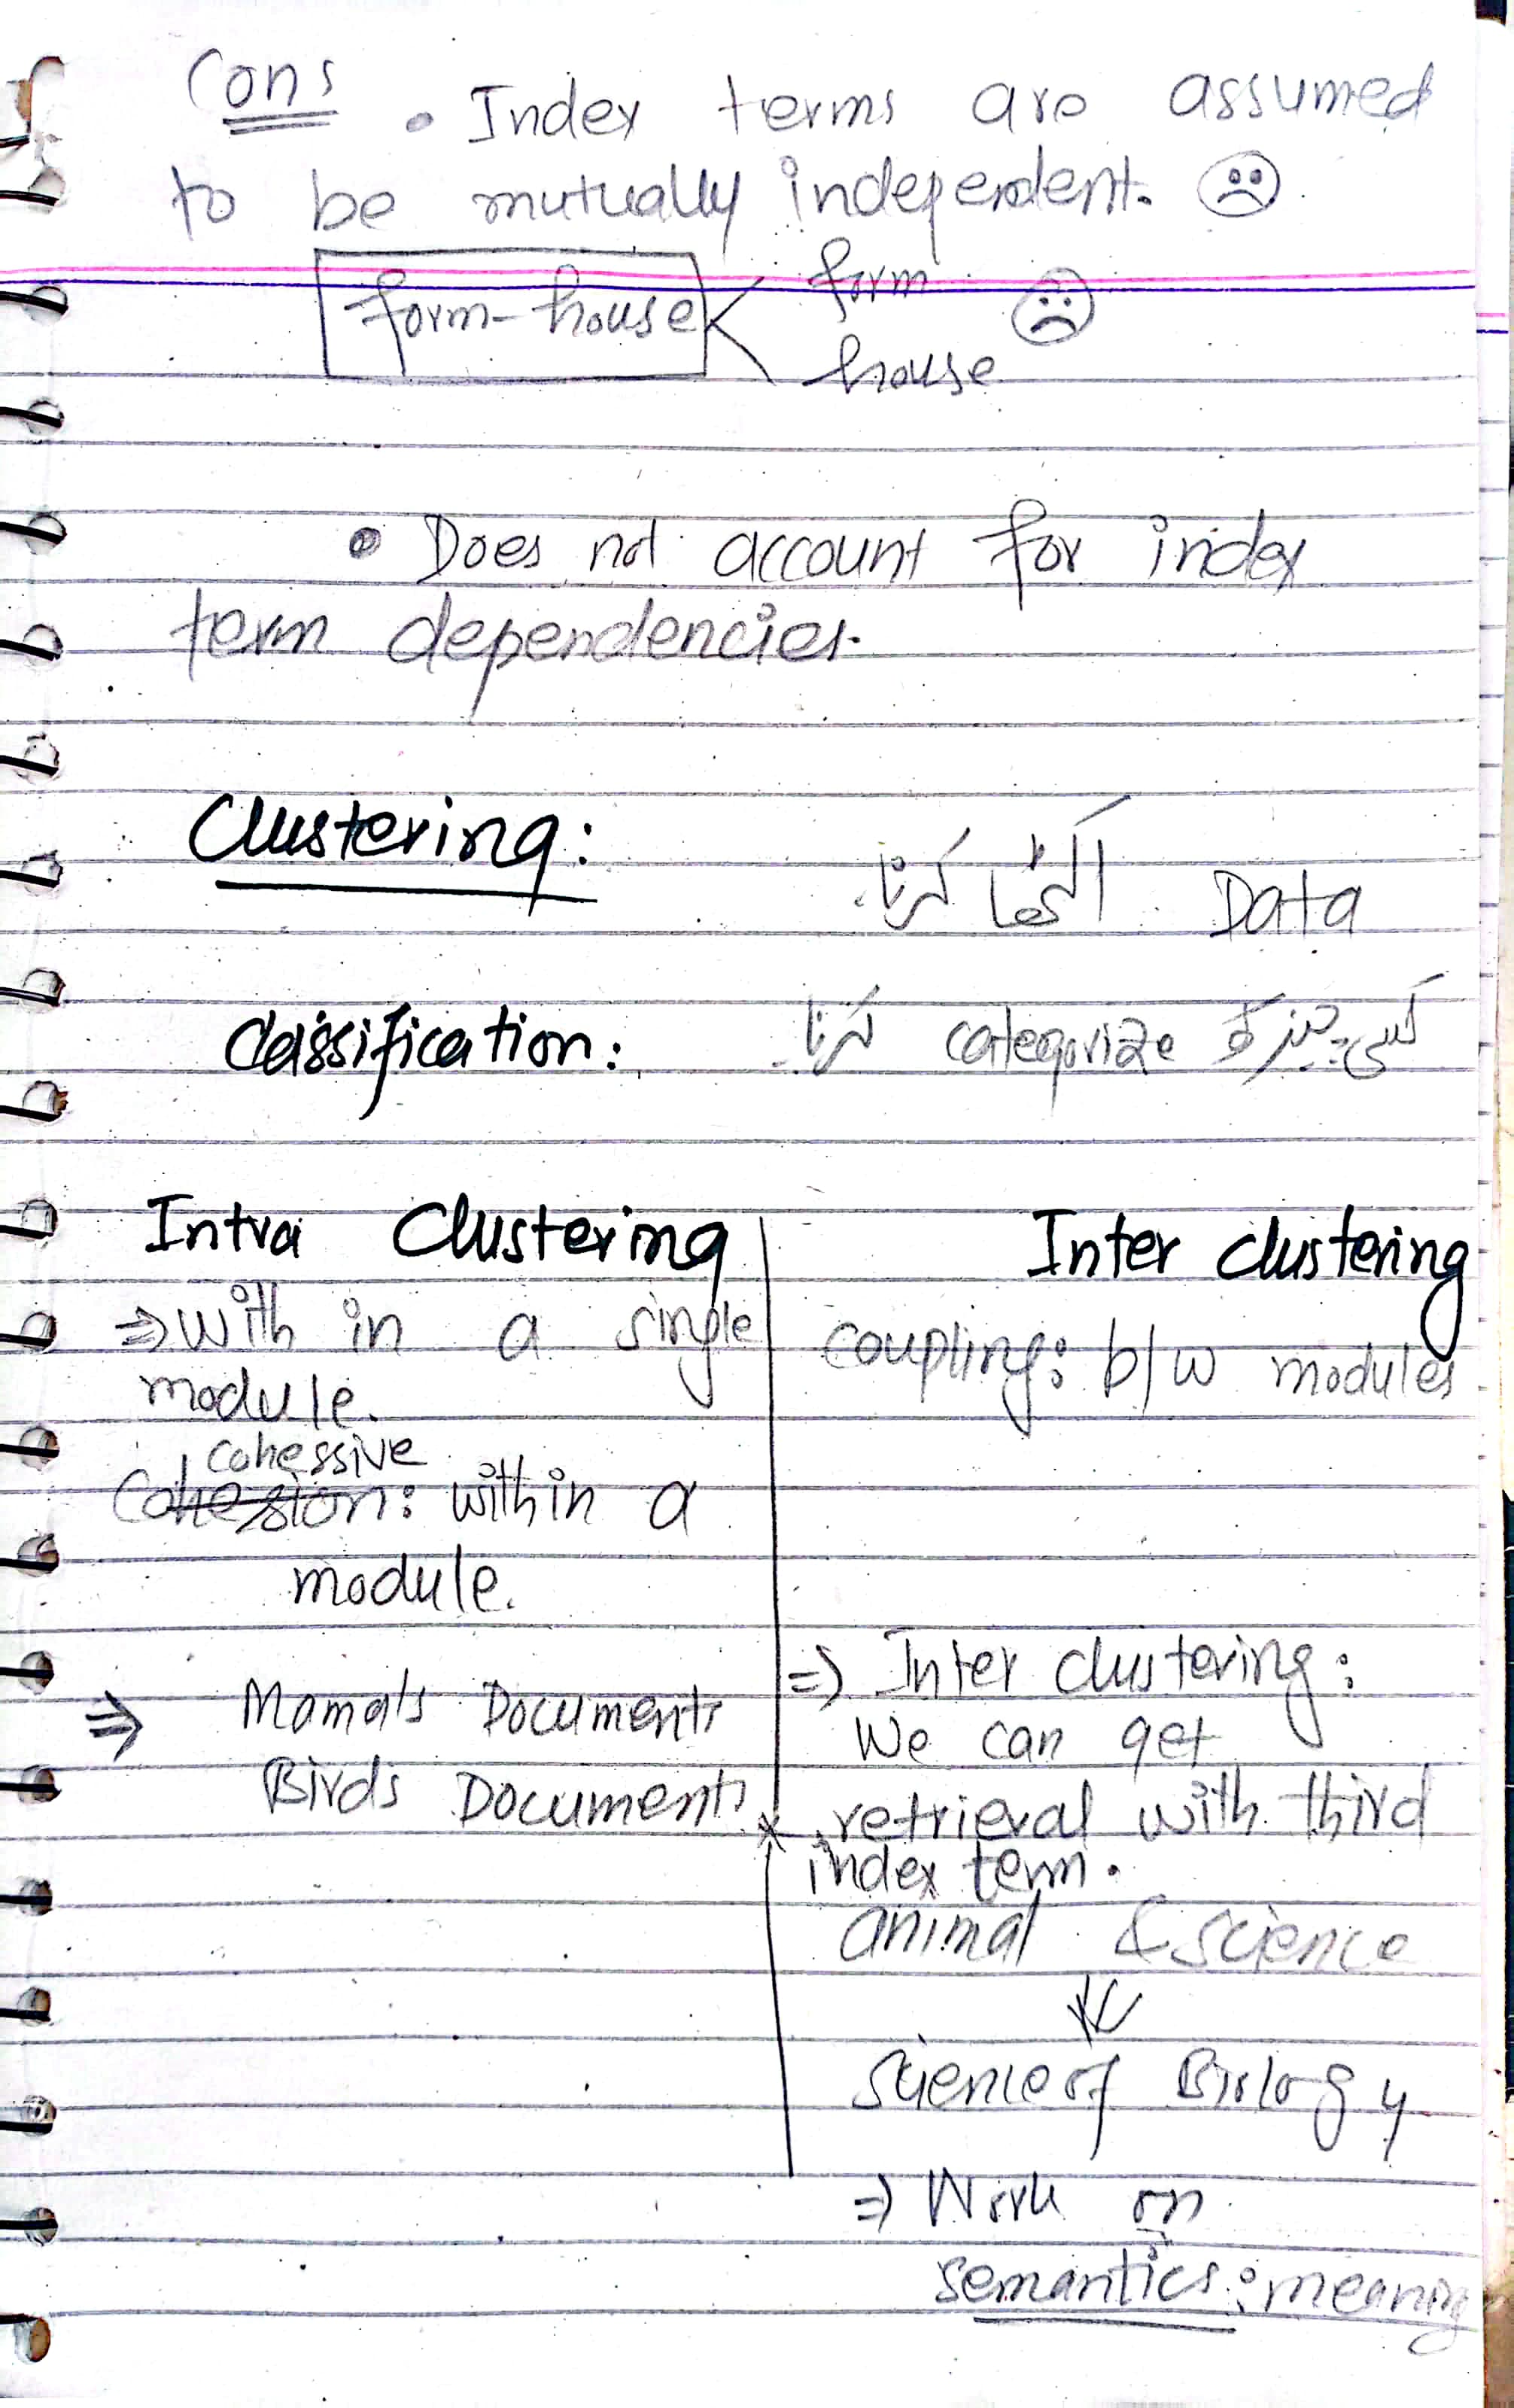 Cons • Index terms are assumed
to be mutually independent. ☹
form-house < form ☹
house
• Does not account for index
term dependencies.
Clustering:
Data اکٹھا کرنا۔
Classification:
کسی چیز کو categorize کرنا۔
Intra Clustering
⇒ with in a single
module.
cohessive
Cohesion: within a
module.
⇒ Mamals Documents
Birds Documents
Inter clustering
coupling: b/w modules
⇒ Inter clustering:
We can get
retrieval with third
index term.
animal & science
Science of Biology
⇒ Work on
semantics: meaning